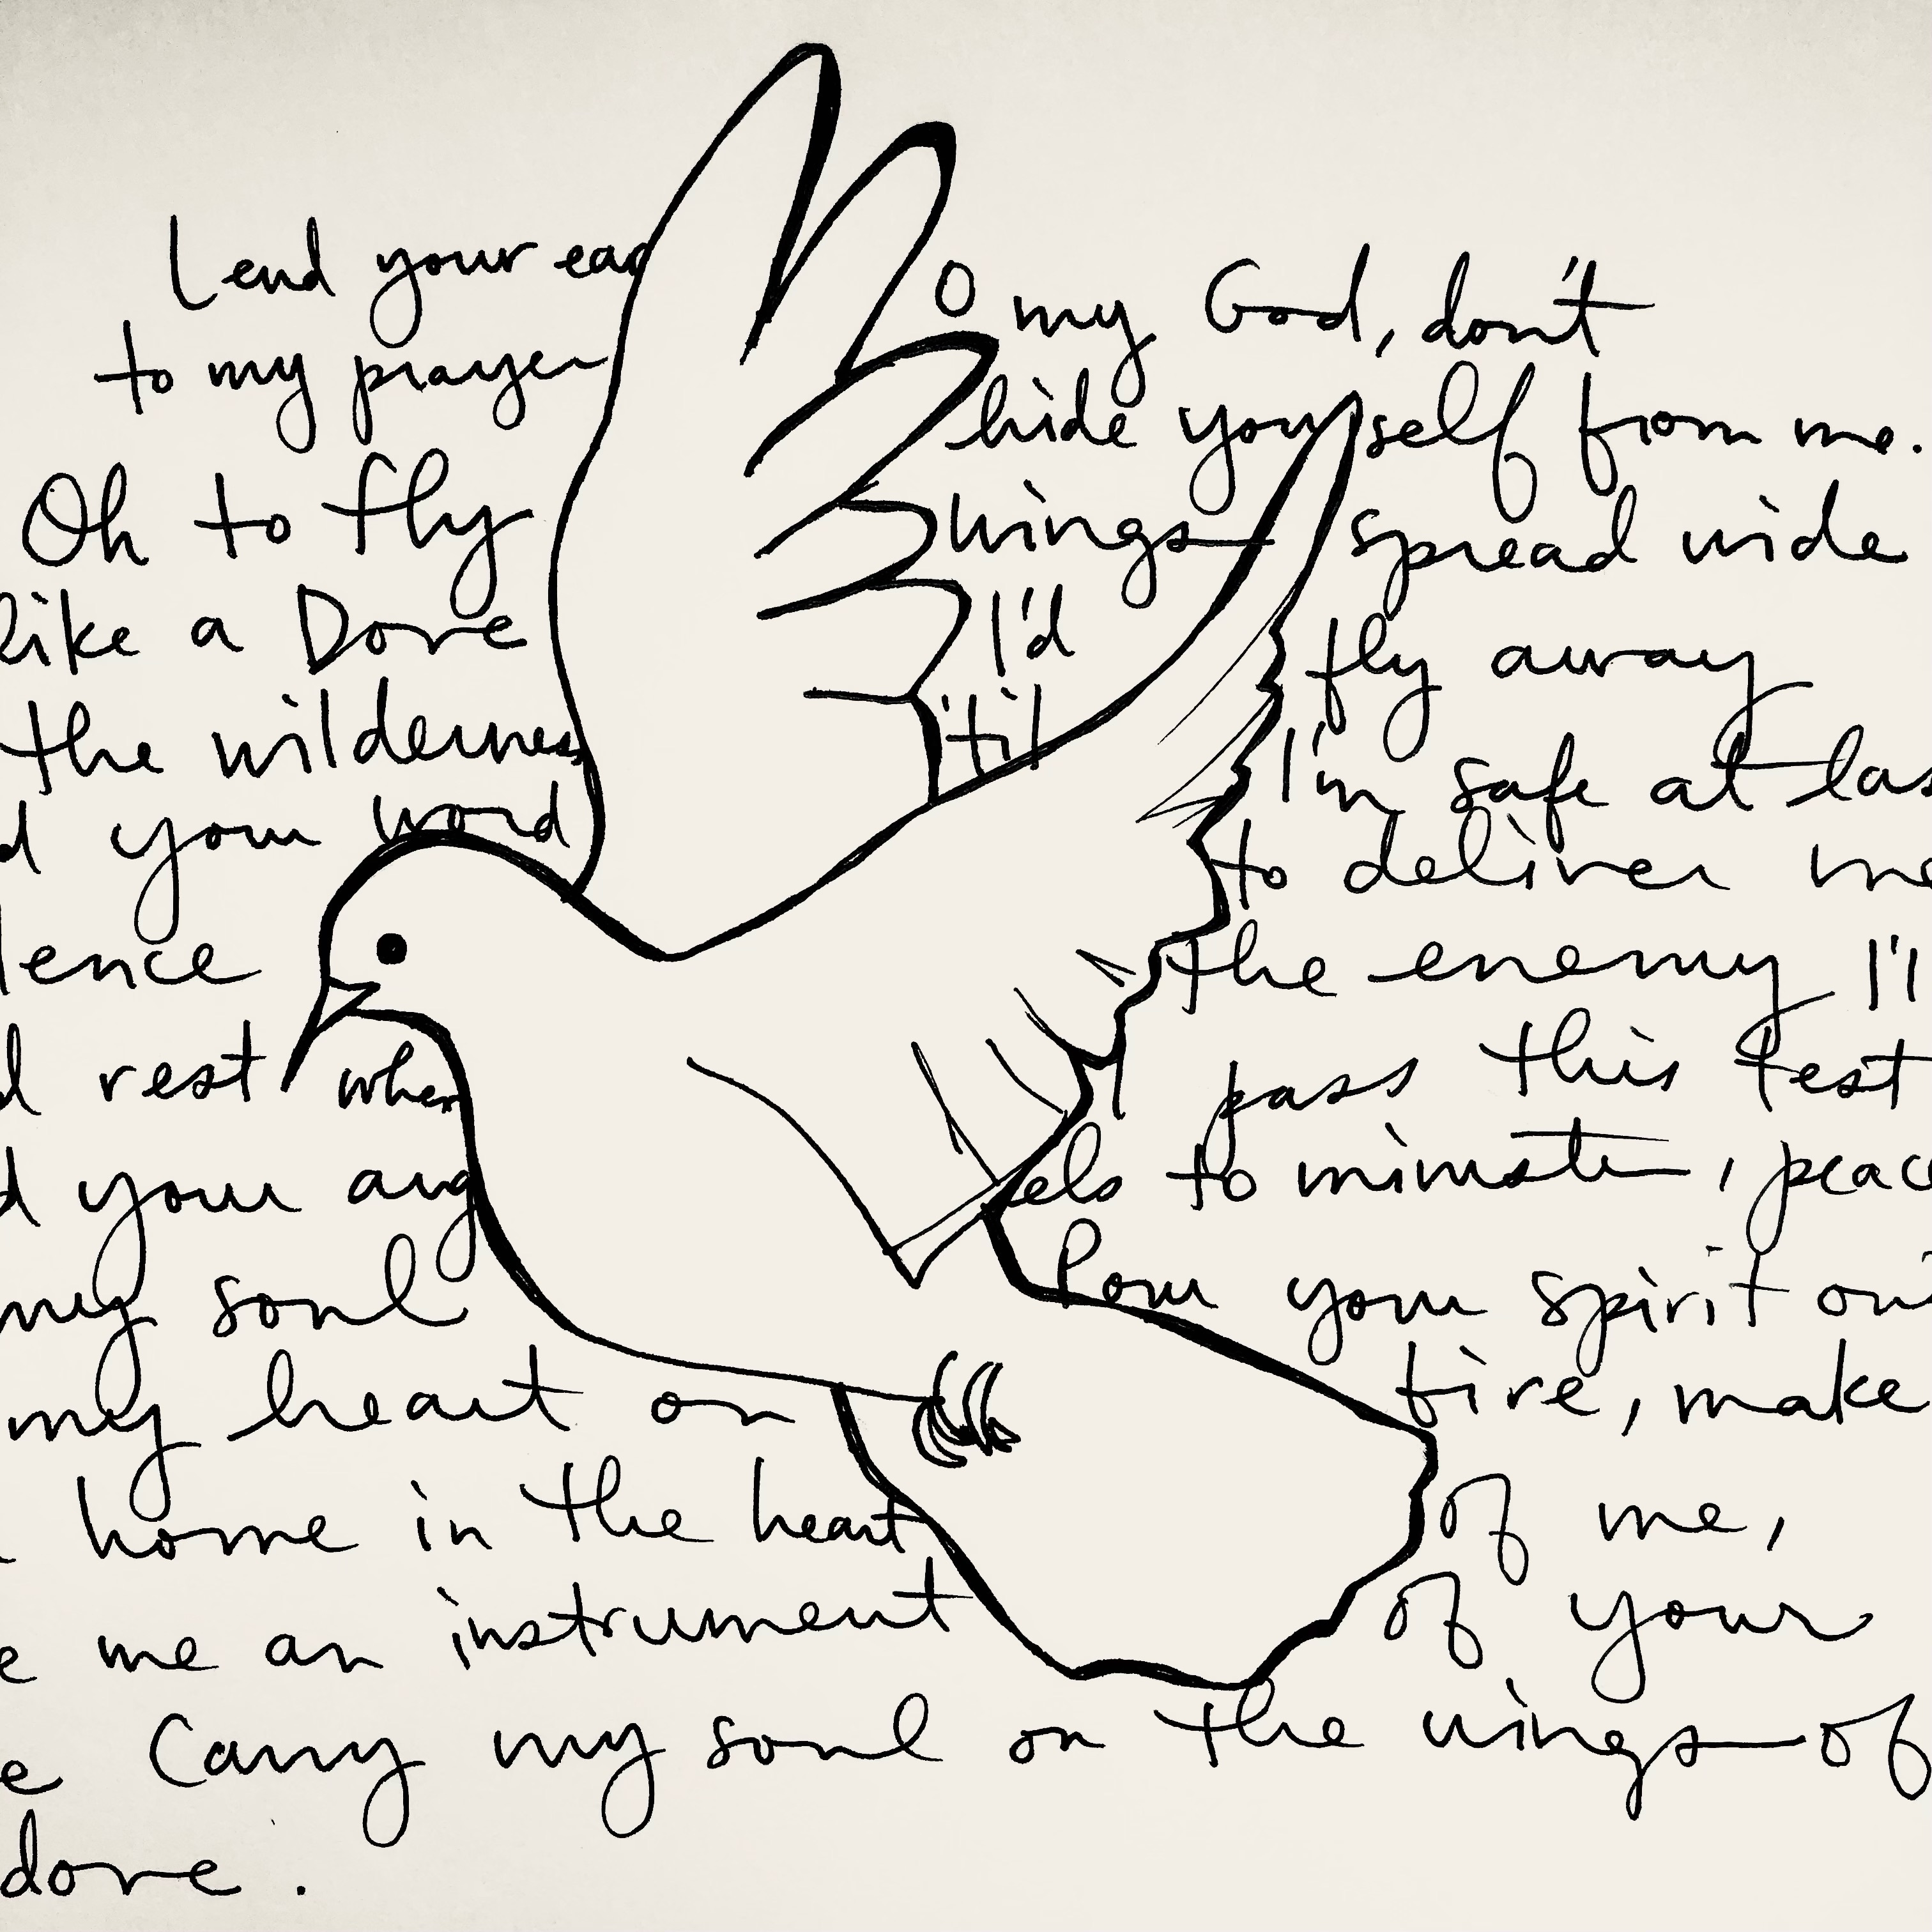 Lend your ear O my God, don't
to my prayer hide yourself from me.
Oh to fly wings spread wide
like a Dove I'd fly away
the wilderness 'til I'm safe at las
d your word to deliver me
lence the enemy I'l
d rest when I pass this test
d your angels to minister, peac
my soul Pour your spirit ou
my heart on fire, make
home in the heart of me,
e me an instrument of your
e Carry my soul on the wings of
dove.